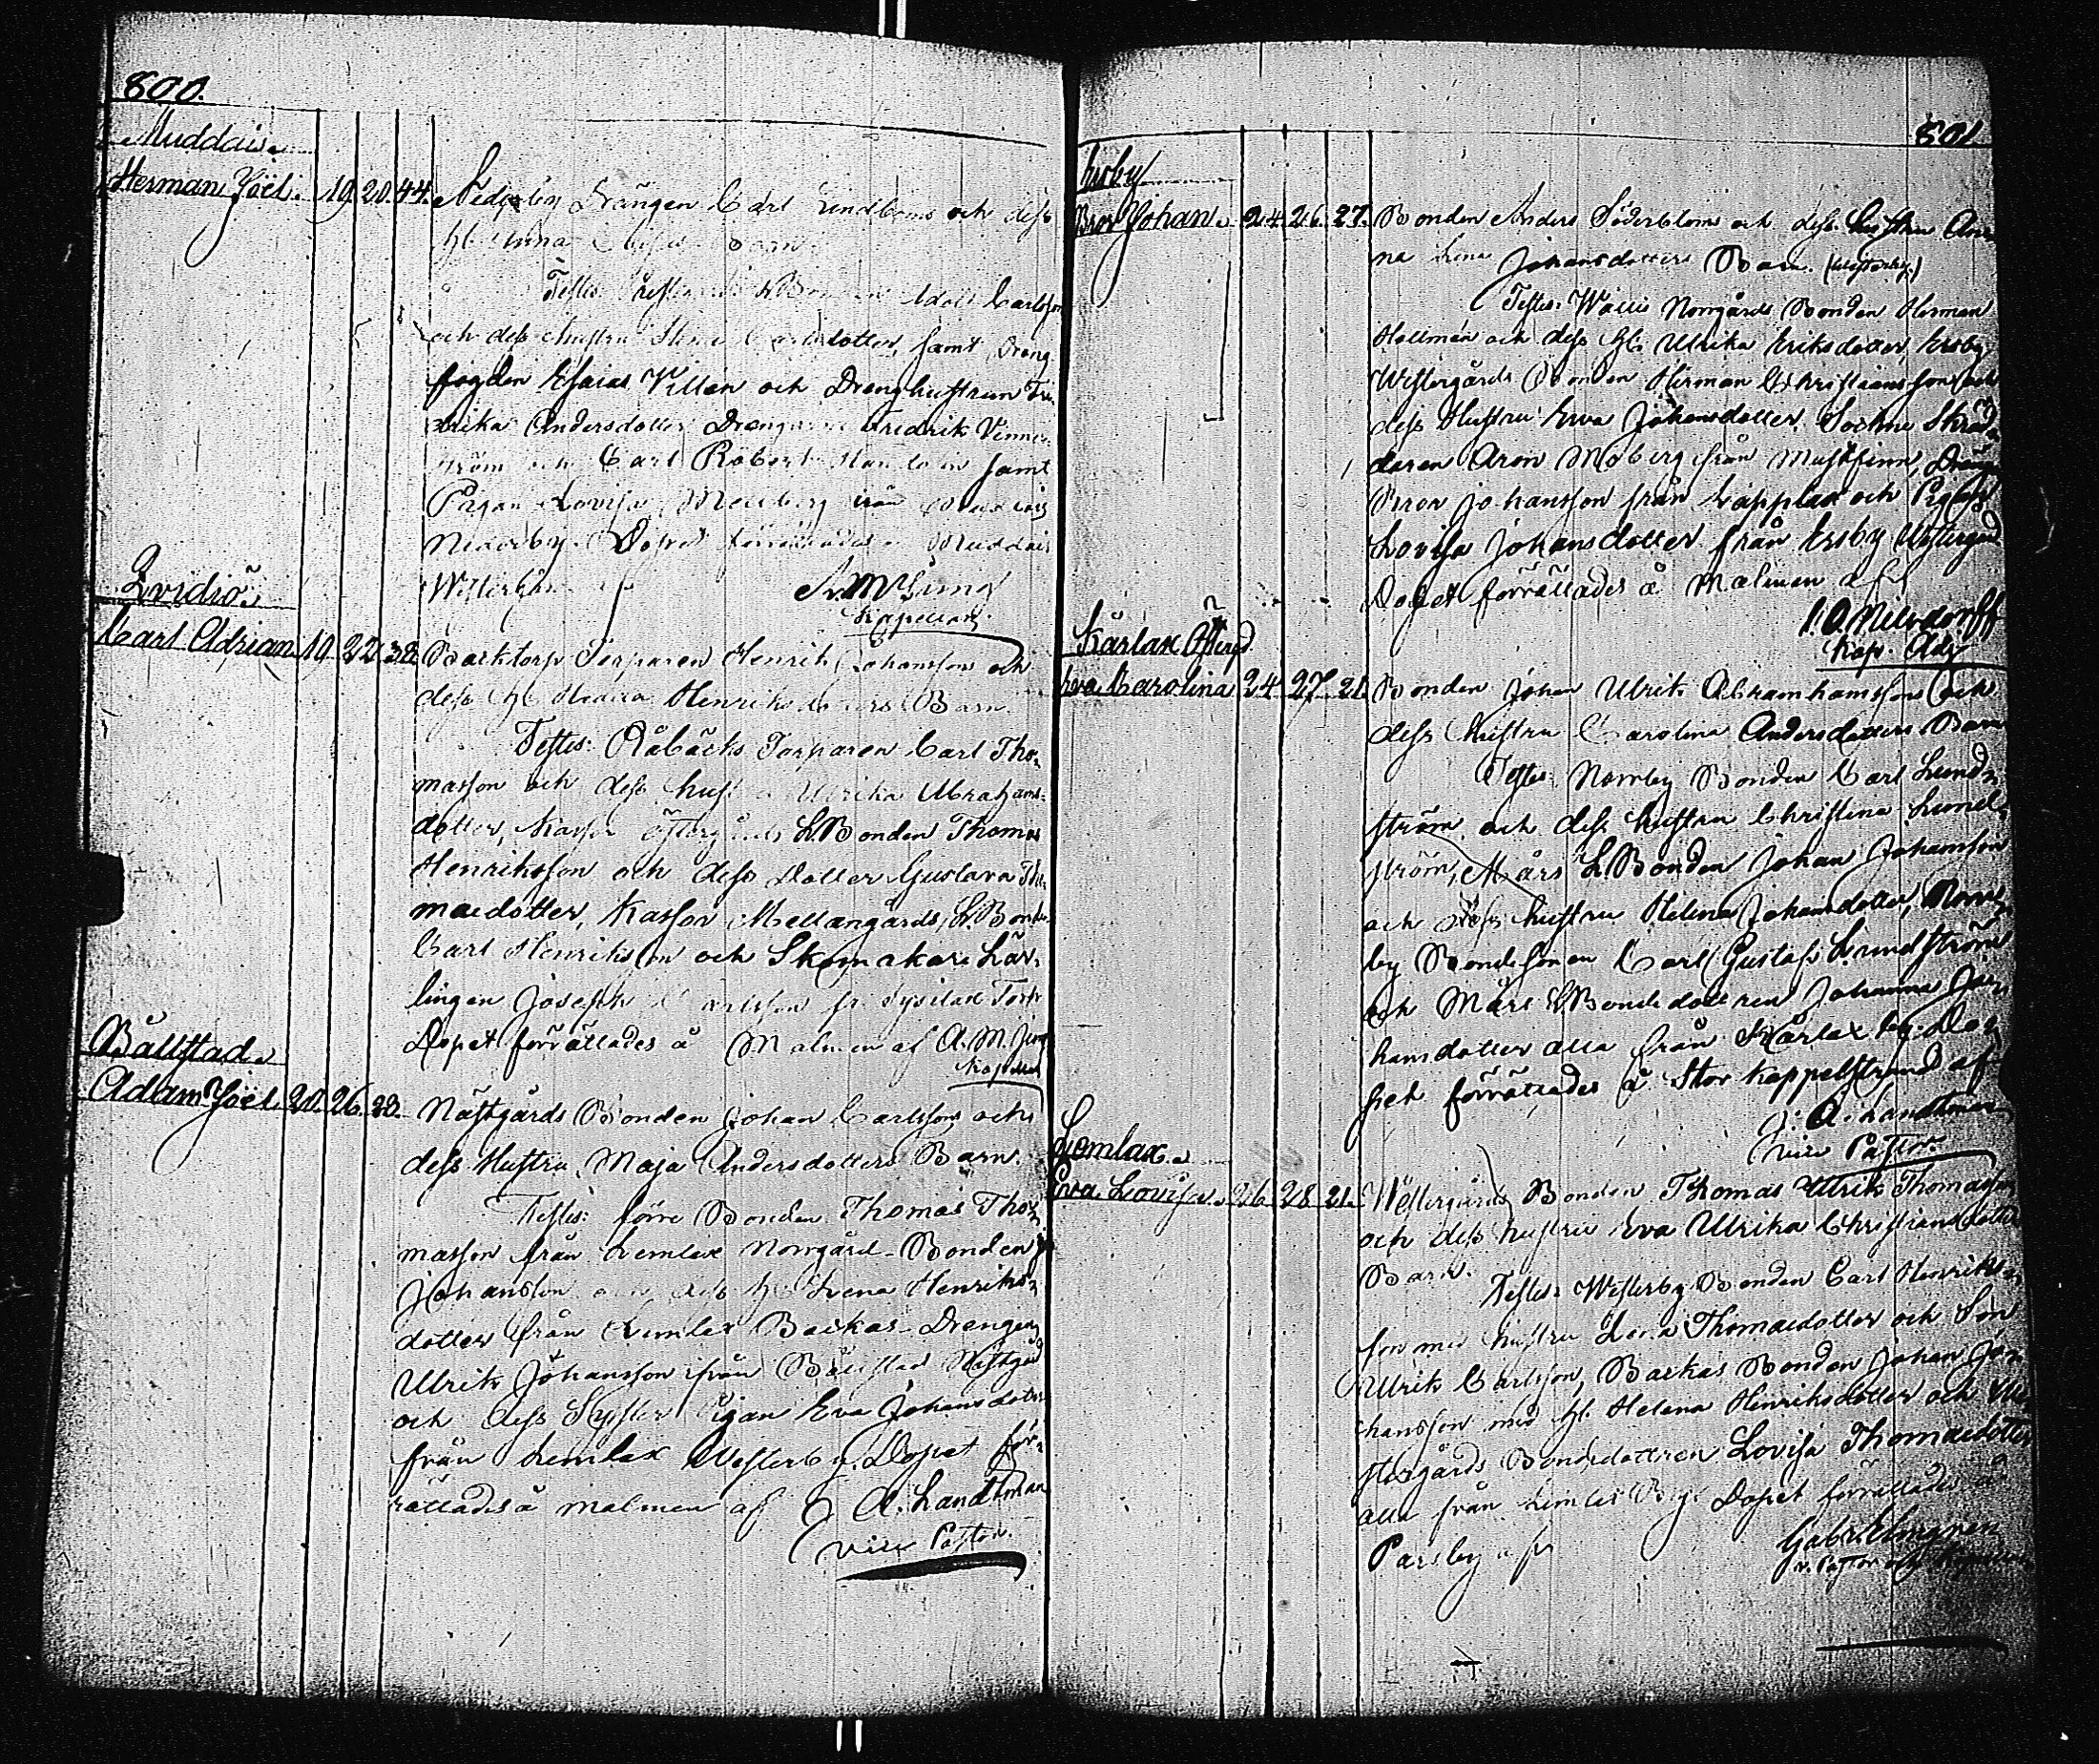 800.
Muddais
Herman Joël. 19. 20. 44. Nederby Drängen Carl Lindbom och dess
Barn.
Testes: Adolf Carlsson
och dess hustru Stina Carlsdotter, samt Dreng
fogden Esaias Villen och Drenghustrun Fre
drika Andersdotter Drengarne Fredrik
ström och Carl Robert samt
Pigan Lovisa från Muddais
Nederby. Dopet förrättades å Muddais
af A. M. Jung
Kapellan.
Qvidiö.
Carl Adrian 19. 22. 38. Backtorps Torparen Henrik Johansson och
dess H. Henriksdotters Barn.
Testes: Råbäcks Torparen Carl Tho-
masson och dess hust Ulrika Abrahams-
dotter, Kasfor östergårds L.Bonden Thomas
Henriksson och dess Dotter Gustava Tho
maedotter, Kasfor Mellangårds L.Bonde
Carl Henriksson och Skomakare Lär-
lingen Joseph Carlsson fr. Sysilax Torp
Dopet förrättades å Malmen af A. M. Jung
Kapellan
Bållstad.
Adam Joël. 20. 26. 28. Nästgårds Bonden Johan Carlsson och
dess Hustru Maja Andersdotters Barn.
Testes: förre Bonden Thomas Tho-
masson från Lemlax Norrgård Bonden J
Johansson och dess H. Lena Henriks-
dotter från Lemlax Backas Drengen
Ulrik Johansson ifrån Bållstad Nästgård
och dess Syster Pigan Eva Johansdotter
från Lemlax Westerby. Dopet för-
rättades å malmen af J. A. Landtman
vice Pastor.
801.
Ersby
Bror Johan. 24. 26. 27. Bonden Anders Söderblom och dess hustru An
na Lena Johansdotters Barn. (Westerby.)
Testes: Norrgårds Bonden Herman
Hellmén och dess H. Ulrika Eriksdotter, Ersby
Westergårds Bonden Herman Christiansson och
dess Hustru Eva Johansdotter, Sockne Skräd-
daren Aron Moberg från Mustfinn, Dräng
Bror Johansson från Capplax och Pigan
Lovisa Johansdotter från Ersby Westergård
Dopet förrättades å Malmen af
Kap. Adj.
Kärlax Östergd
Eva Carolina 24. 27. 21. Bonden Johan Ulrik Abramhamsson och
dess hustru Carolina Andersdotters Barn
Testes: Norrby Bonden Carl Lund-
ström och dess hustru Christina Lund-
ström, Mårs L.Bonden Johan Johansson
och dess hustru Helena Johansdotter, Norr-
by Bondesonen Carl Gustaf Lundström
och Mårs L.Bondedottren Johanna Jo-
hansdotter alla från Kärlax by. Do-
pet förrättades å Stor Kappelstrand af
J. A. Landtman
vice Pastor.
Lemlax.
Eva Lovisa. 26. 28. 21. Westergårds Bonden Thomas Ulrik Thomasson
och dess hustru Eva Ulrika Christiansdotter
Barn.
Testes: Westerby Bonden Carl Henriks-
son med hustru Lena Thomaedotter och Son
Ulrik Carlsson, Backas Bonden Johan Jo-
hansson med H. Helena Henriksdotter och We
stergårds Bondedottren Lovisa Thomaedotter
alla från Lemlax By. Dopet förrättades å
Parsby af Gabr. Elmgren
v. Pastor och Kapellan